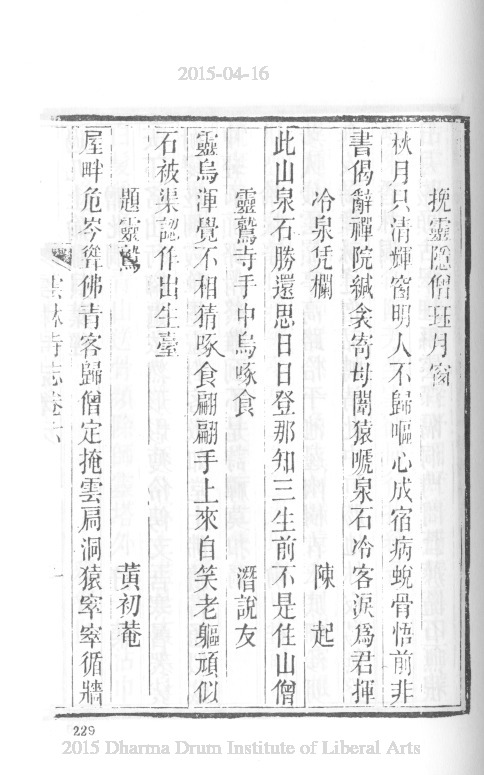 2015-04-16
挽靈隱僧珏月窗
秋月只清輝窗明人不歸嘔心成宿病蛻骨悟前非
書偈辭禪院緘衾寄母闈猿啼泉石冷客淚爲君揮
冷泉凭欄 陳起
此山泉石勝還思日日登那知三生前不是住山僧
靈鷲寺手中烏啄食 潛說友
靈烏渾覺不相猜啄食翩翩手上來自笑老軀頑似
石被渠認作出生臺
題靈鷲 黃初菴
屋畔危岑聳佛青客歸僧定掩雲扃洞猿宰宰循牆
雲林寺志卷六
229
2015 Dharma Drum Institute of Liberal Arts